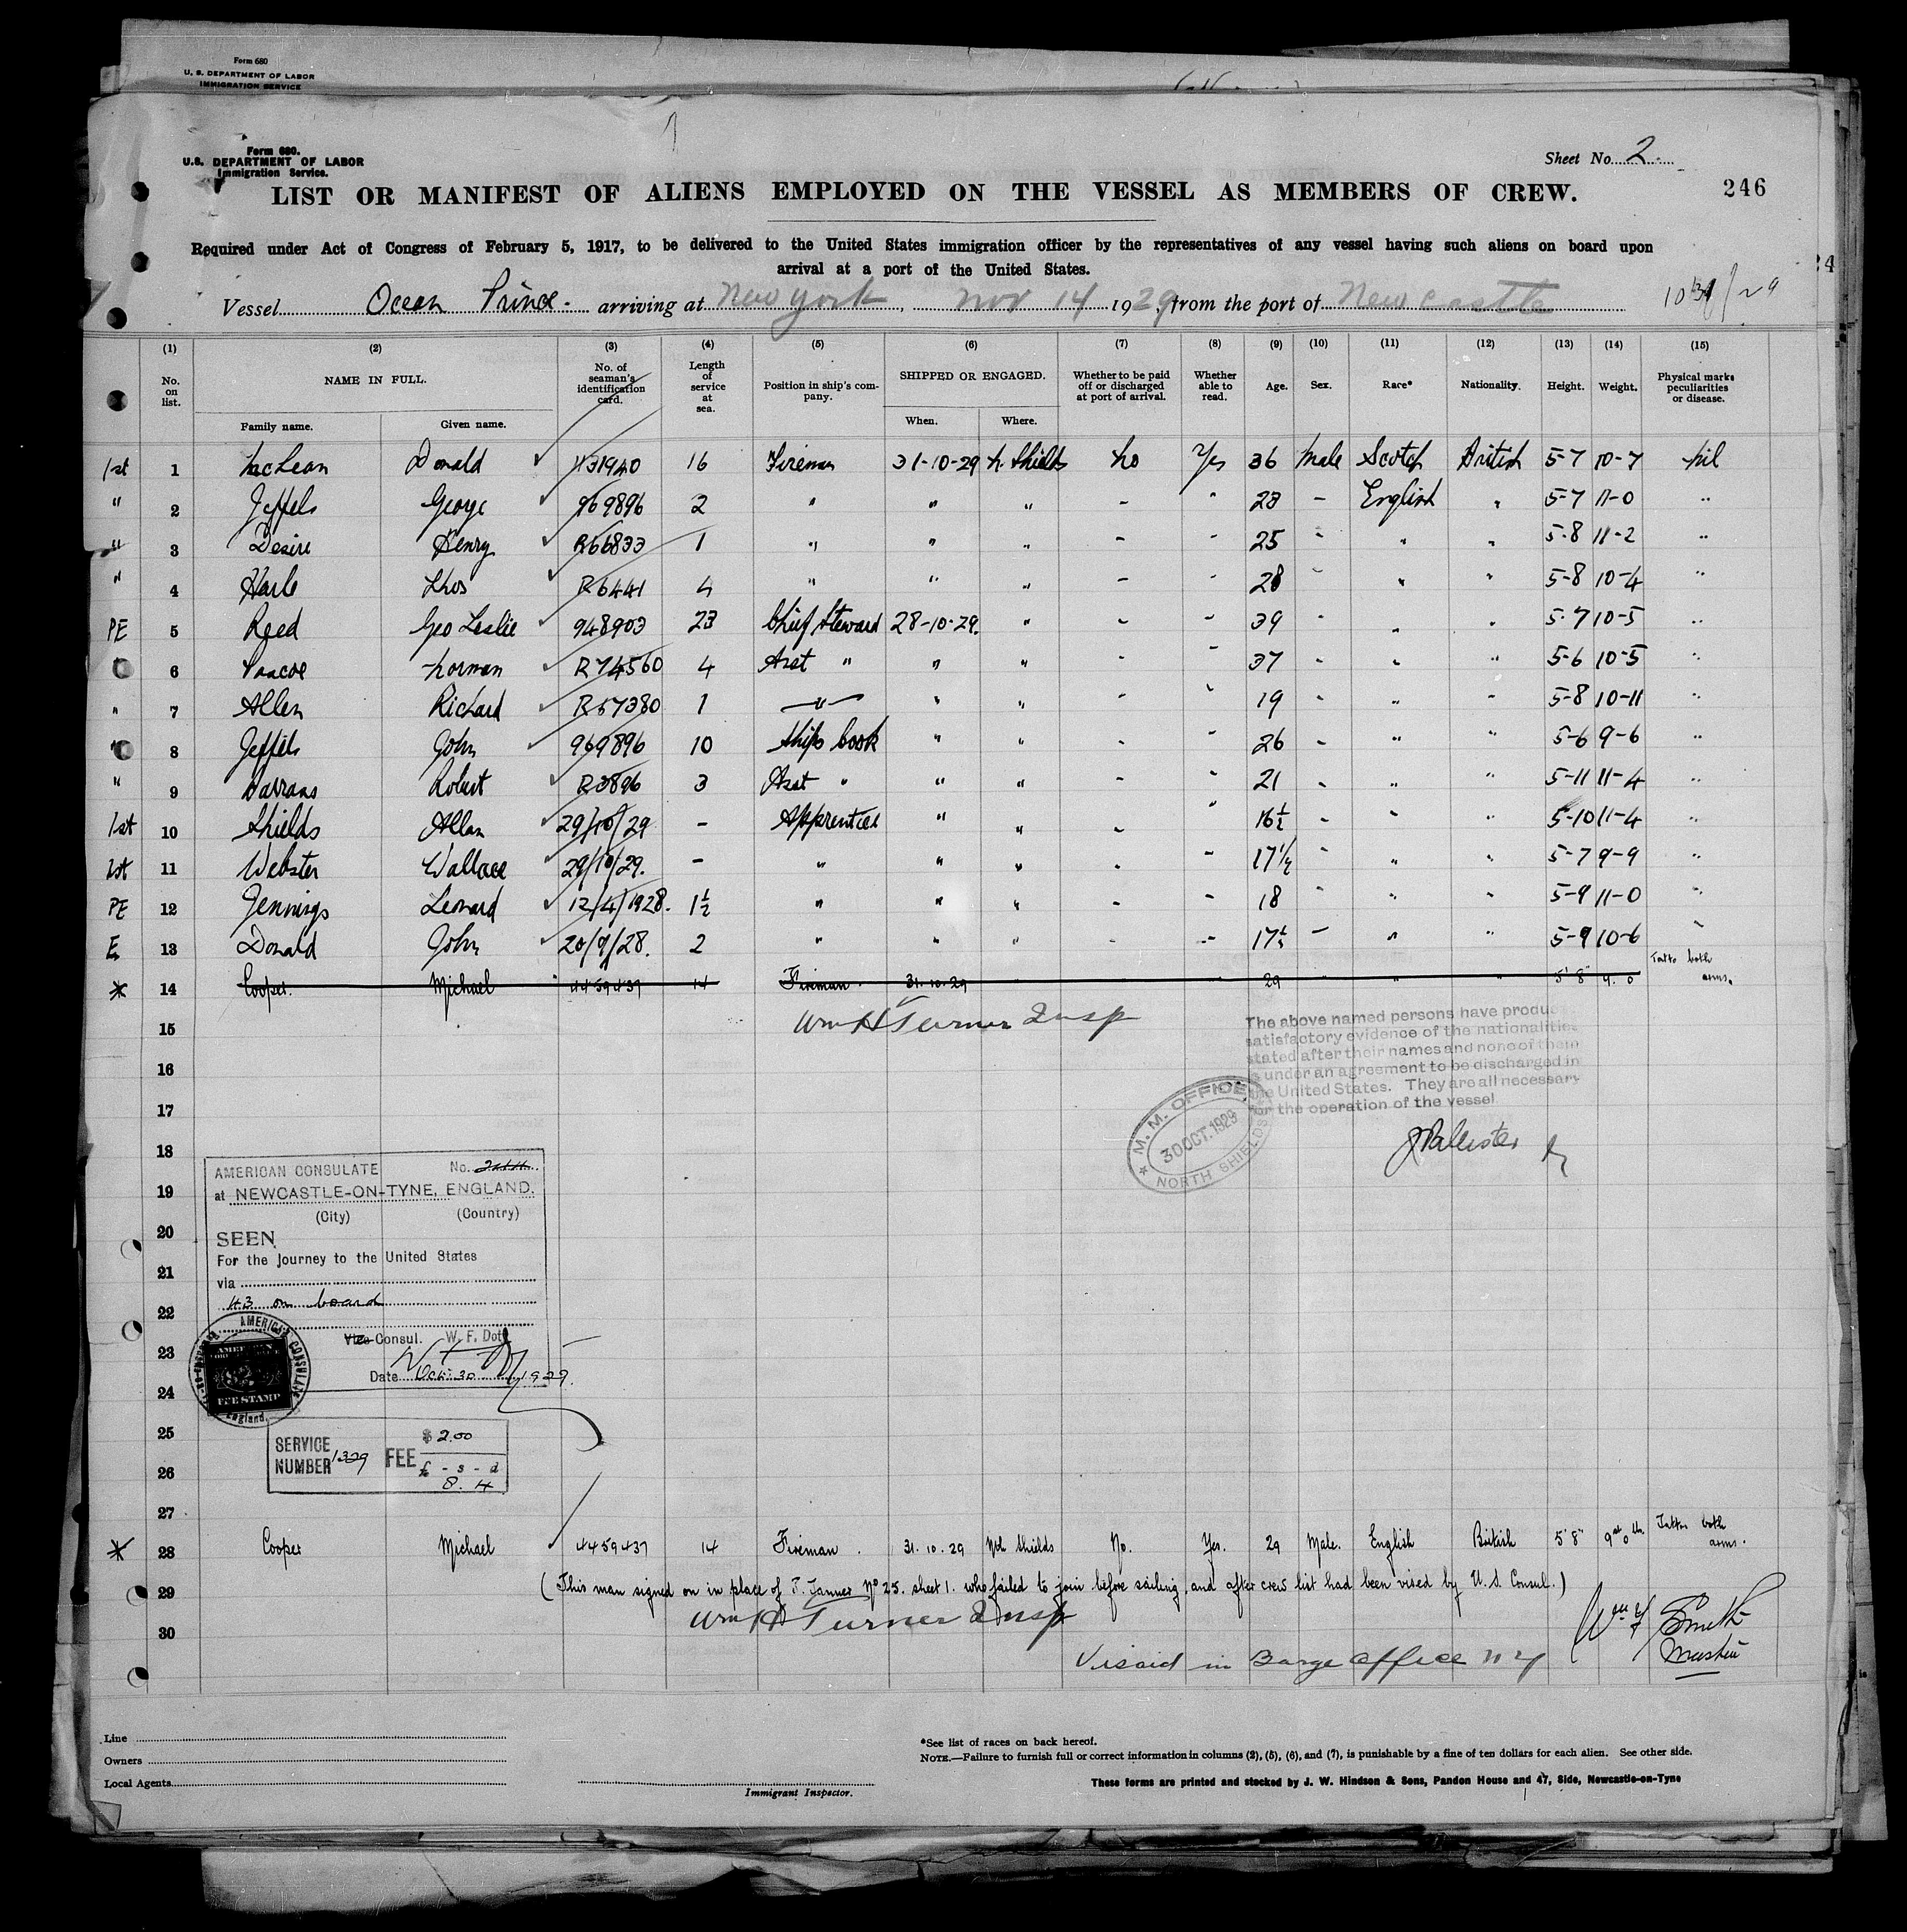 Form 680
U. S. DEPARTMENT OF LABOR
IMMIGRATION SERVICE
Form 680.
U.S. DEPARTMENT OF LABOR
Immigration Service.
Sheet No. 2.
LIST OR MANIFEST OF ALIENS EMPLOYED ON THE VESSEL AS MEMBERS OF CREW.
246
Required under Act of Congress of February 5, 1917, to be delivered to the United States immigration officer by the representatives of any vessel having such aliens on board upon
arrival at a port of the United States.
Vessel Ocean Prince arriving at New York, Nov 14 1929, from the port of Newcastle
(1) (2) (3) (4) (5) (6) (7) (8) (9) (10) (11) (12) (13) (14) (15)
No. on list. NAME IN FULL. Family name. Given name. No. of seaman's identification card. Length of service at sea. Position in ship's company. SHIPPED OR ENGAGED. When. Where. Whether to be paid off or discharged at port of arrival. Whether able to read. Age. Sex. Race* Nationality. Height. Weight. Physical marks peculiarities or disease.
1st 1 McLean Donald 431940 16 Fireman 31-10-29 N. Shields No Yes 36 Male Scotch British 5-7 10-7 Nil
" 2 Jeffels George 969896 2 " " " - " 23 - English " 5-7 11-0 "
" 3 Desire Henry R66833 1 " " " - " 25 " " " 5-8 11-2 "
" 4 Harle Thos R6441 4 " " " - " 28 " " " 5-8 10-4 "
PE 5 Reed Geo Leslie 948903 23 Chief Steward 28-10-29. " - " 39 " " " 5-7 10-5 "
6 Pascoe Norman R74560 4 Asst " " " - " 37 " " " 5-6 10-5 "
" 7 Allen Richard R57380 1 " " " - " 19 " " " 5-8 10-11 "
" 8 Jeffels John 969896 10 Ships Cook " " - " 26 - " " 5-6 9-6 "
" 9 Barrans Robert R3896 3 Asst " " " - " 21 - " " 5-11 11-4 "
1st 10 Shields Allan 29/10/29 - Apprentice " " - " 16½ - " " 5-10 11-4 "
1st 11 Webster Wallace 29/10/29. - " " " - " 17½ " " " 5-7 9-9 "
PE 12 Jennings Leonard 12/4/1928. 1½ " " " - " 18 " " " 5-9 11-0 "
E 13 Donald John 20/9/28. 2 " " " - " 17½ - " " 5-9 10-6 "
* 14 Cooper. Michael 4459437 14 Fireman. 31.10.29 " " " 29 " " " 5'8" 9.0 Tatto both arms.
15 Wm H Turner Insp
The above named persons have produc
satisfactory evidence of the nationalities
stated after their names and none of them
is under an agreement to be discharged in
the United States. They are all necessary
for the operation of the vessel.
16
17
M. M. OFFICE
30 OCT. 1929
NORTH SHIELDS
J Pallister
18
AMERICAN CONSULATE No.
at NEWCASTLE-ON-TYNE, ENGLAND.
(City) (Country)
19
20
SEEN
For the journey to the United States
21
via
22
43 on board
23
Vice Consul. W. F. Doty
Date Oct 30 1929.
24
AMERICAN CONSULATE
AMERICAN
FEE STAMP
England.
25
SERVICE NUMBER 1329 FEE $ 2.00
£ - s - d
8. 4
26
27
* 28 Cooper Michael 4459437 14 Fireman. 31.10.29 Nth Shields No. Yes. 29 Male. English British 5'8" 9 st 0 lb. Tatto both arms.
29 (This man signed on in place of T. Tanner No 25. sheet 1. who failed to join before sailing, and after crew list had been vised by U.S. Consul.)
30 Wm H Turner Insp
Smith
Master
Visaid in Barge office NY
Line
Owners
Local Agents
Immigrant Inspector.
*See list of races on back hereof.
NOTE.—Failure to furnish full or correct information in columns (2), (5), (6), and (7), is punishable by a fine of ten dollars for each alien. See other side.
These forms are printed and stocked by J. W. Hindson & Sons, Pandon House and 47, Side, Newcastle-on-Tyne